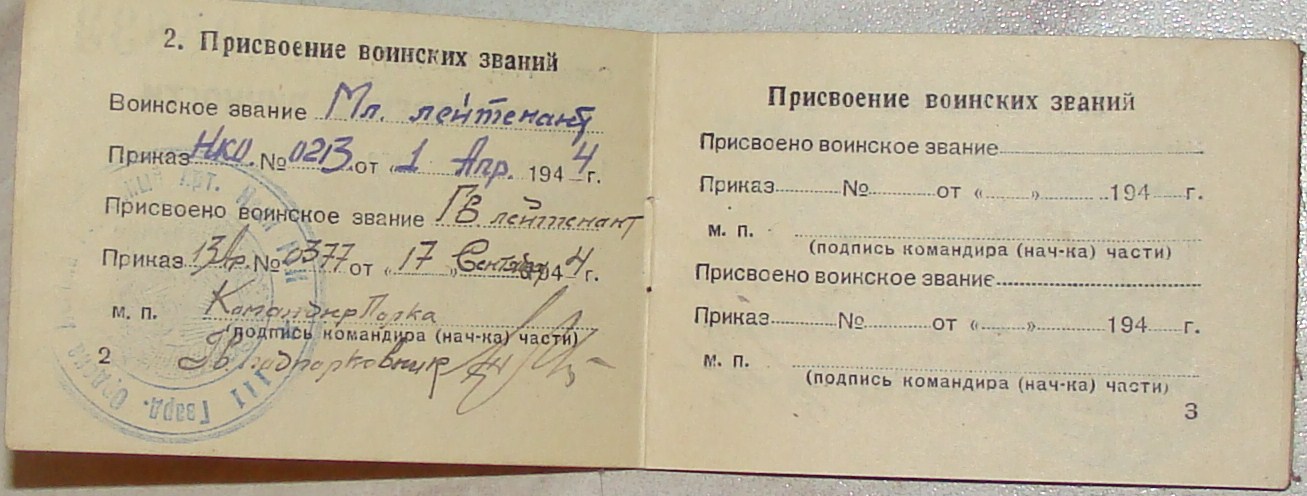 2. Присвоение воинских званий
Воинское звание Мл. лейтенант
Приказ НКО. № 0213 от „1 Апр. 1944 г.
Присвоено воинское звание Гв. лейтенант
Приказ № 0377 от „17„ Сентября 1944 г.
м. п. Командир Полка
(подпись командира (нач-ка) части)
Гв подполковник
2
111 Гвард.
Присвоение воинских званий
Присвоено воинское звание
Приказ № от «» 194 г.
м. п.
(подпись командира (нач-ка) части)
Присвоено воинское звание
Приказ № от «» 194 г.
м. п.
(подпись командира (нач-ка) части)
3